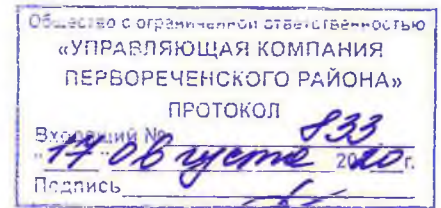 Общество с ограниченной ответственностью
«УПРАВЛЯЮЩАЯ КОМПАНИЯ
ПЕРВОРЕЧЕНСКОГО РАЙОНА»
ПРОТОКОЛ
Входящий № 833
"17" августа 2020г.
Подпись